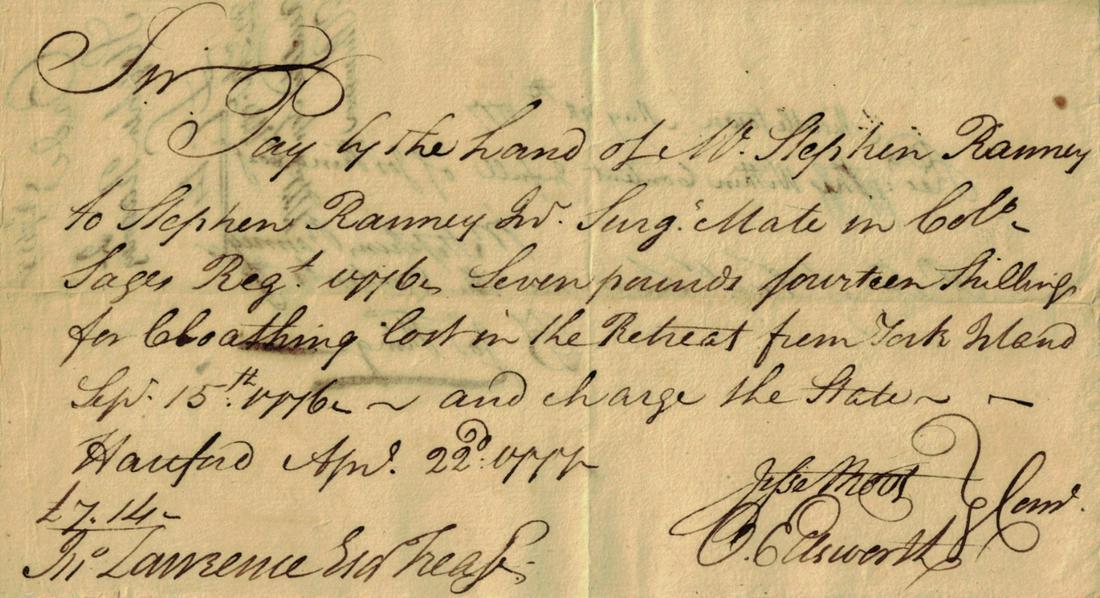 Sir
Pay by the hand of Mr. Stephen Ranney
to Stephen Ranney Jnr. Surgs. Mate in Colo.
Sages Regt. 1776 Seven pounds fourteen Shillings
for Cloathing lost in the Retreat from York Island
Sepr. 15th. 1776 — and charge the State —
Hartford Apr. 22d. 1777
£7.14-
Jno Lawrence Esqr Treasr.
Jesse Root
O. Ellsworth } Com.